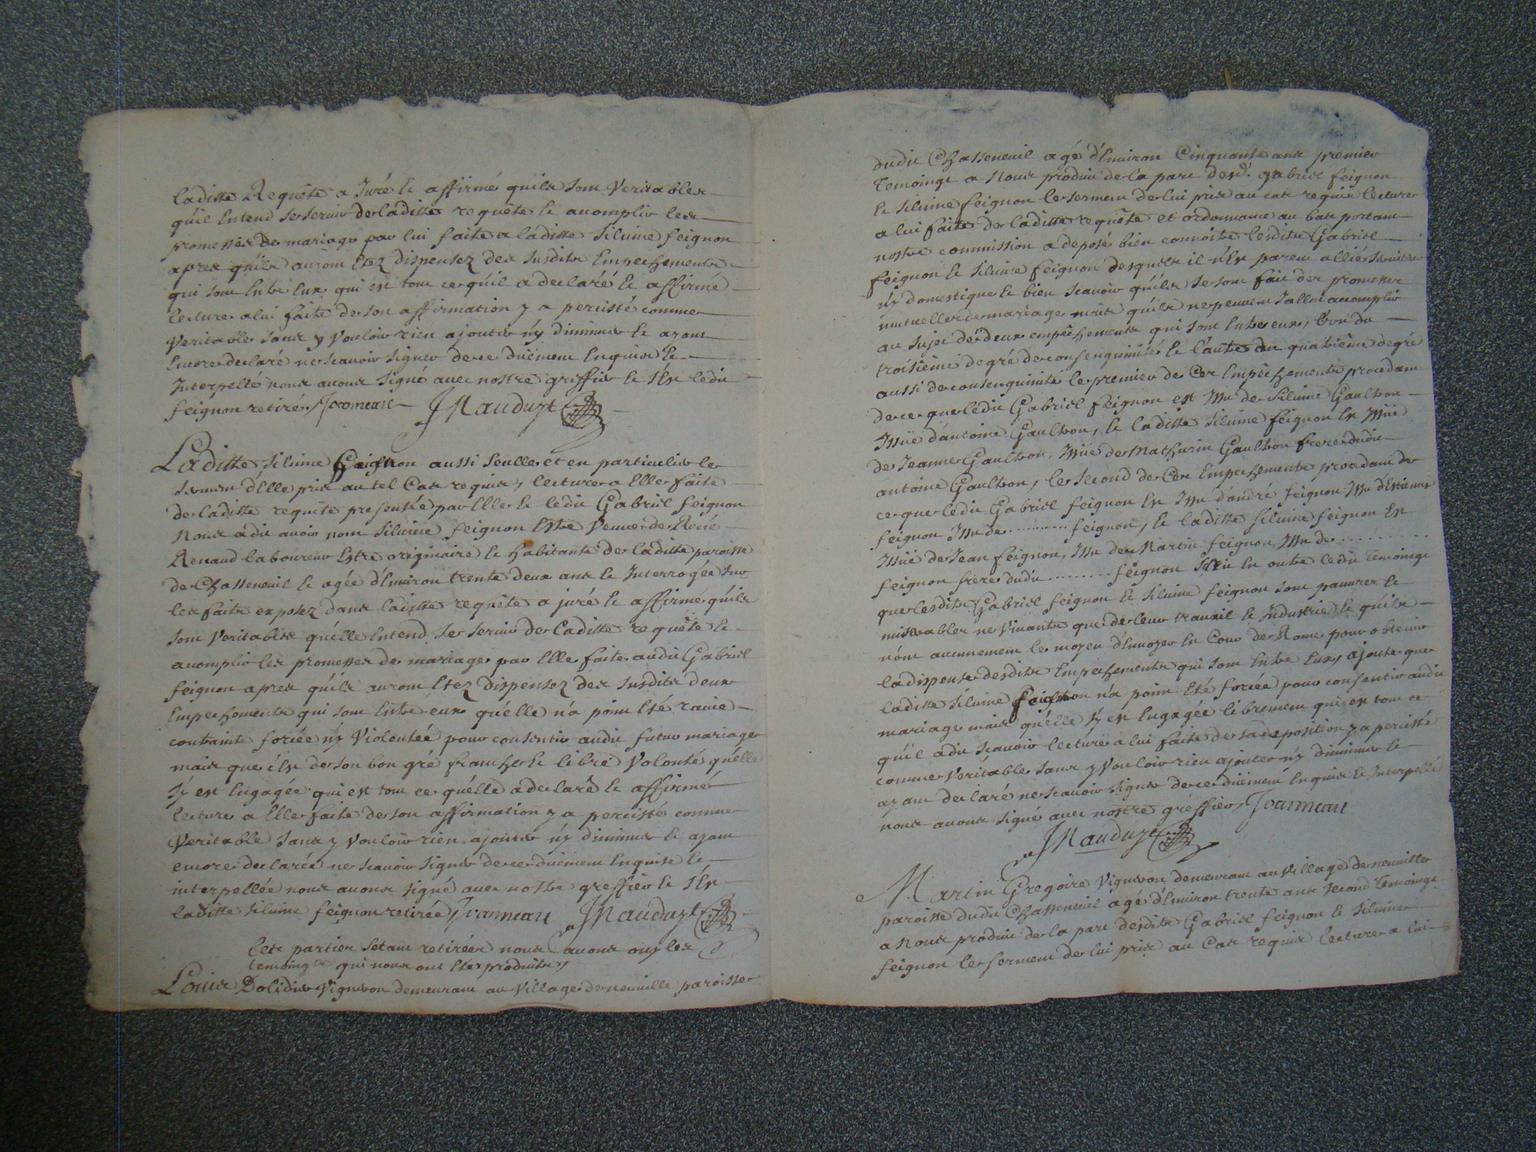 laditte Requête a Juré et affirmé qu'ils sont veritables
qu'il Entend se servir de laditte requête et acomplir les
promesses de mariage par lui faite a laditte Silvine feignon
apres qu'ils auront Etez Dispensez des susdits Empechements
qui sont Entre Eux qui est tout ce qu'il a declaré et affirmé
lecture a lui faite de son affirmation y a percisté comme
veritable sans y vouloir rien ajouter ny diminuer et ayant
Encore declaré ne scavoir signer de ce dûement Enquis et
Interpellé nous avons signé avec nostre greffier et s'est ledit
feignon retiré Joanneau JNauduzt
Laditte Silvine feignon aussi seulle et en particulier le
serment d'Elle pris au tel Cas requis, lecture a Elle faite
de laditte requête presentée par Elle et ledit Gabriel feignon
Nous a dit avoir nom Silvine feignon Estre veuve de René
Renaud laboureur Estre originaire et habitante de laditte paroisse
de Chasseneuil et agée d'Environ trente deux ans et Interrogée sur
les faits exposez dans laditte requête a juré et affirmé qu'ils
sont veritables qu'elle Entend se servir de laditte requête et
acomplir les promesses de mariage par Elle faite audit Gabriel
feignon apres qu'ils auront Etez Dispensez des susdits deux
Empechements qui sont Entre eux qu'elle n'a point Eté ravie
contrainte forcée ny violentée pour consentir audit futur mariage
mais que c'est de son bon gré franche et libre volonté qu'elle
s'y est Engagée qui est tout ce qu'elle a declaré et affirmé
lecture a Elle faite de son affirmation y a percisté comme
veritable sans y vouloir rien ajouter ny diminuer et ayant
encore declaré ne scavoir signer de ce dûement Enquise et
interpellée nous avons signé avec nostre greffier et s'est
laditte Silvine feignon retirée Joanneau JNauduzt
Les parties s'etant retirées nous avons ouy les
temoings qui nous ont Etes produits
Louis Dolidier vigneron demeurant au village de neuville paroisse
dudit Chasseneuil agé d'Environ Cinquante ans premier
Temoing a Nous produit de la part desd. Gabriel feignon
et Silvine feignon le serment de lui pris au cas requis lecture
a lui faite de laditte requête et ordonnance au bas portant
nostre commission a deposé bien connoitre lesdits Gabriel
feignon et Silvine feignon desquels il n'est parent allié serviteur
ny domestique et bien scavoir qu'ils se sont fait des promesses
mutuelles de mariage mais qu'ils ne peuvent valloir acomplir
au sujet des deux empêchements qui sont Entre eux, l'un du
troisième degré de consenguinité et l'autre du quatrième degré
aussi de consenguinité le premier de Ces Empêchements procedant
de ce que ledit Gabriel feignon est Issu de Silvine Gaultron
Issuë d'antoine Gaultron, et laditte Silvine feignon Est Issuë
de Jeanne Gaultron, Issuë de Mathurin Gaultron frere dudit
antoine Gaultron, le second de Ces Empechements procedant de
ce que ledit Gabriel feignon Est Issu d'andré feignon Issu d'Etienne
feignon Issu de .......... feignon, et laditte Silvine feignon Est
Issuë de Jean feignon, Issu de Martin feignon Issu de ..........
feignon frere dudit ........ feignon ; en outre ledit temoing
que lesdits Gabriel feignon et Silvine feignon sont pauvres et
miserables ne vivants que de leur travail et Industrie et qu'ils
n'ont aucunement le moyen d'Envoyer En Cour de Rome pour obtenir
la dispense desdits Empechements qui sont Entre Eux, ajoute que
laditte Silvine feignon n'a point Eté forcée pour consentir audit
mariage mais qu'elle s'y est Engagée librement qui est tout ce
qu'il a dit scavoir lecture a lui faite de sa deposition y a percisté
comme veritable sans y vouloir rien ajouter ny diminuer et
ayant declaré ne scavoir signer de ce dûement Enquis et Interpellé
nous avons signé avec nostre greffier Joanneau
JNauduzt
Martin Gregoire vigneron demeurant au village de neuville
paroisse dudit Chasseneuil agé d'Environ trente ans second Temoing
a Nous produit de la part desdits Gabriel feignon et Silvine
feignon le serment de lui pris au Cas requis lecture a lui